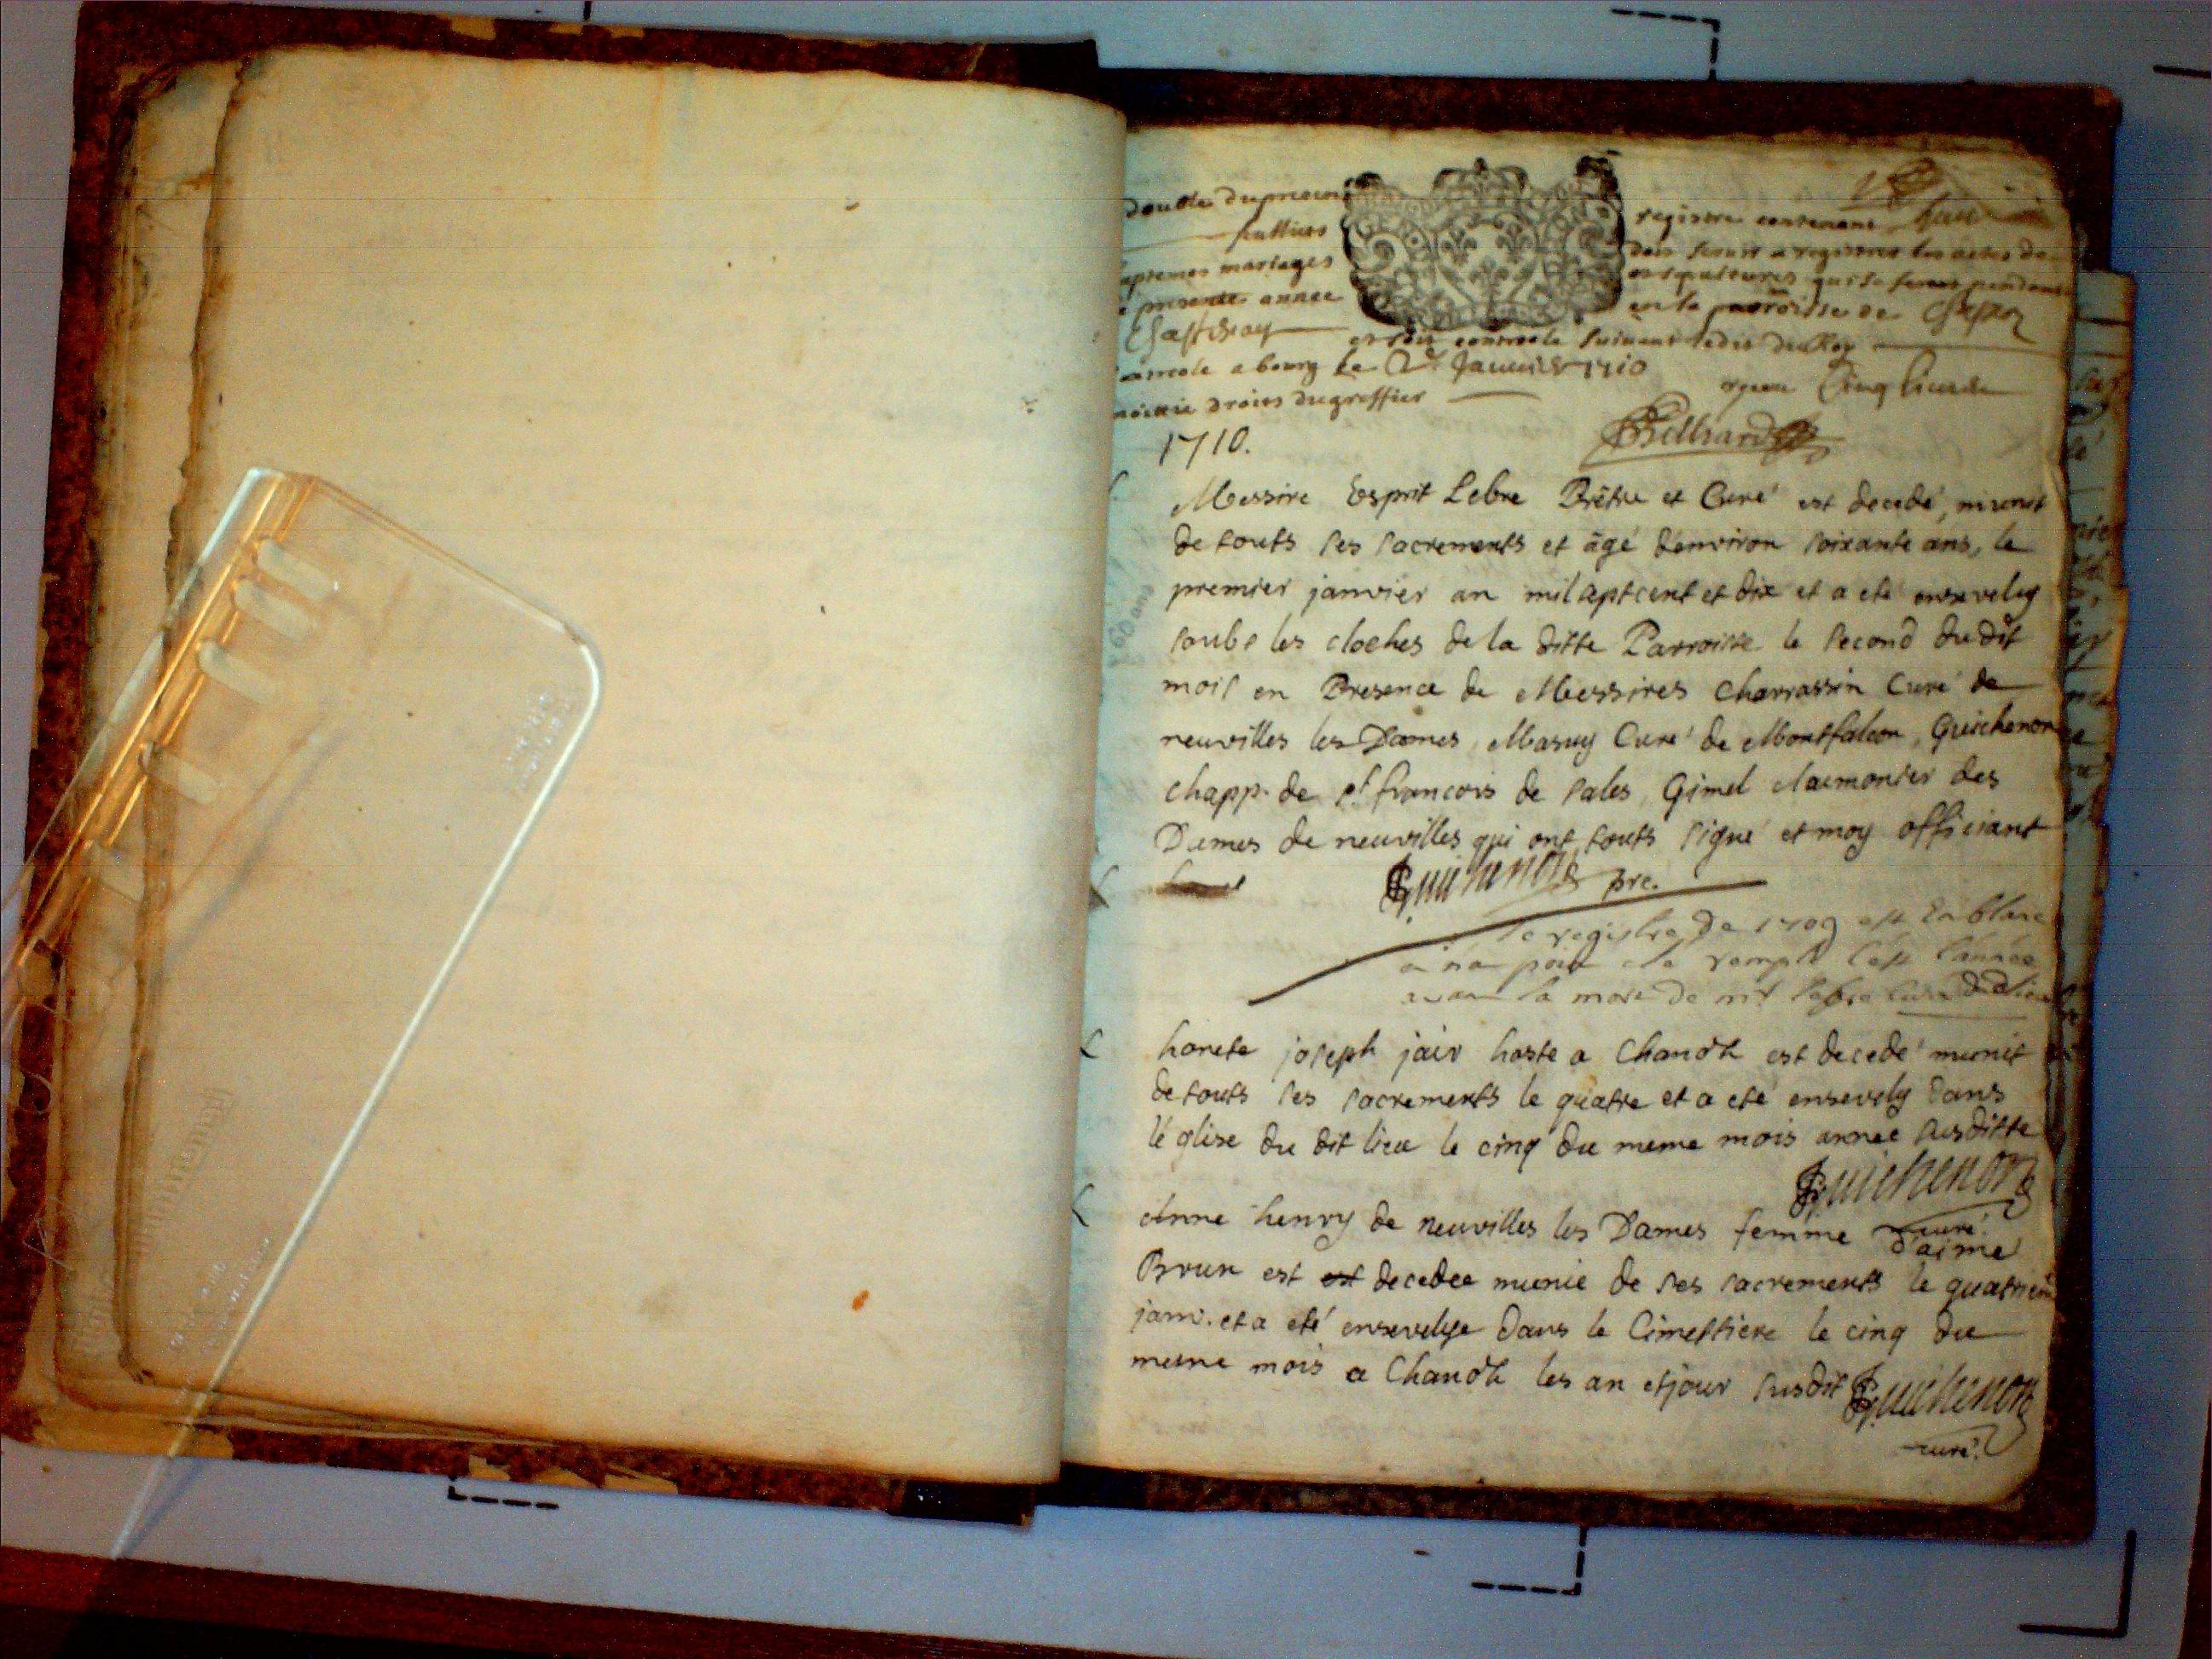 double du present
registre contenant huit
feuilliets
doit servir a registrer les actes de
baptemes mariages
et sepultures qui se feront pendant
la presente annee
en la parroisse de
Chastenay
et son controole suivant ledit du Roy
controle a bourg le 2e Januier 1710
reçeu Cinq
moitie droits du greffier
1710.
60 ans
Messire Esprit Lebre Prêtre et Curé est decedé, munit
de touts ses sacrements et âgé d'environ soixante ans, le
premier janvier an mil sept cent et dix et a eté ensevely
soubs les cloches de la ditte Parroisse le second du dit
mois en Presence de Messires Charrassin Curé de
neuvilles les Dames, Masuy Curé de Montfalcon, Guichenon
chapp. de st francois de sales, Gimel Aumonier des
Dames de neuvilles qui ont touts signé et moy officiant
Guichenon pre.
le registre de 1709 est En blanc
a na point ete rempli cest lannee
avan la mort de mr lebre curé
honete joseph jair hoste a Chanoz est decedé munit
de touts ses sacrements le quatre et a eté ensevely dans
l'église du dit lieu le cinq du meme mois annee susditte
Guichenon
curé
Anne henry de neuvilles les Dames femme d'aimé
Brun est est decedee munie de ses sacrements le quatriem
janv. et a eté ensevelye dans le Cimettiere le cinq du
meme mois a Chanoz les an et jour susdit Guichenon
curé.